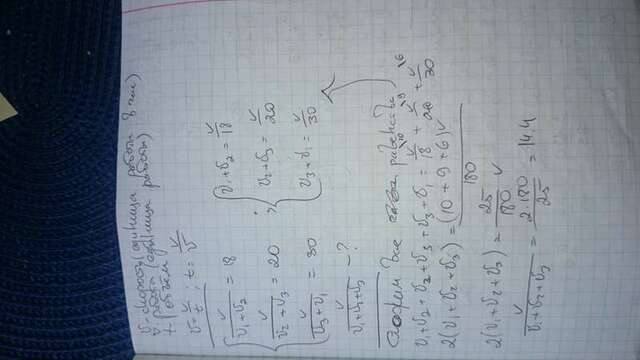 v - скорость (единица работы в час)
V - работы (единица работы)
t - объём
v = V/t ; t = V/v
{ V/(v₁+v₂) = 18
V/(v₂+v₃) = 20 ;
V/(v₃+v₁) = 30
{ v₁+v₂ = V/18
v₂+v₃ = V/20
v₃+v₁ = V/30
V/(v₁+v₂+v₃) - ?
все равенства
v₁+v₂+v₂+v₃+v₃+v₁ = V/18 + V/20 + V/30
2(v₁+v₂+v₃) = (10+9+6)V/180
2(v₁+v₂+v₃) = 25/180 V
V/(v₁+v₂+v₃) = 2·180/25 = 14.4